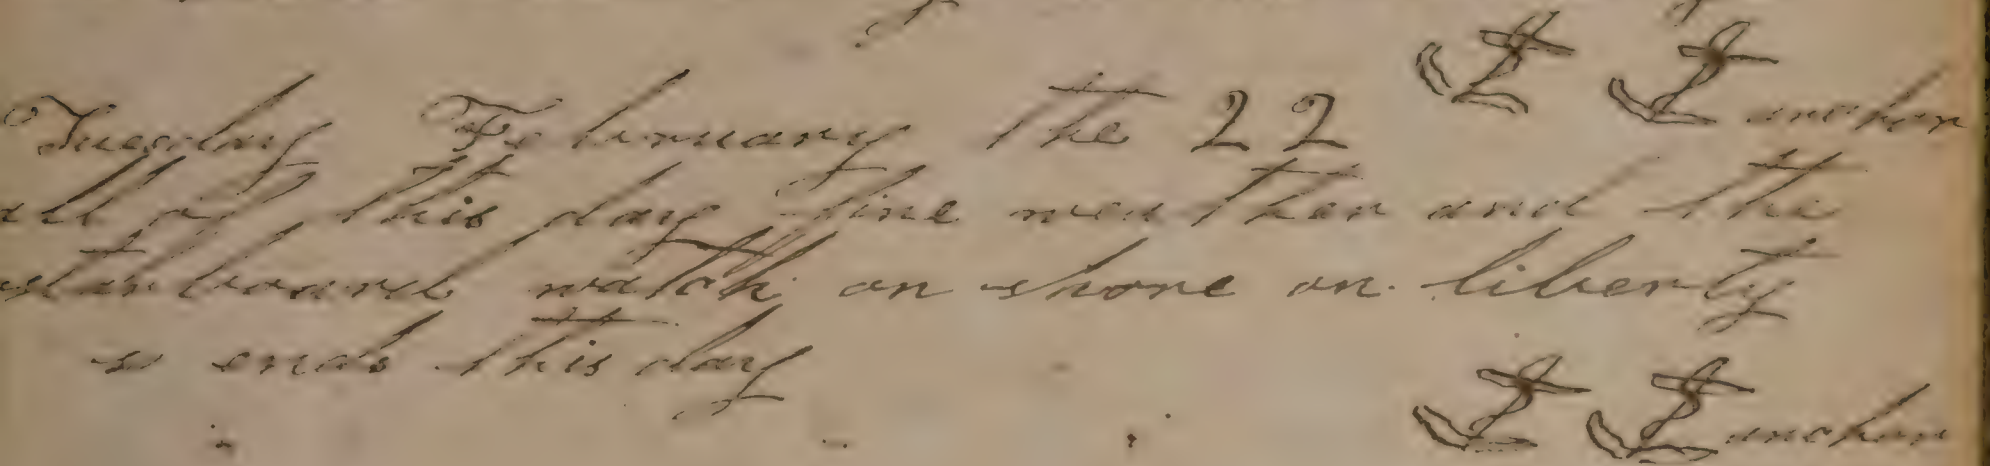 Tuesday February the 22 anchor
all of this day fine weather and the
starboard watch on shore on liberty
so ends this day
anchor